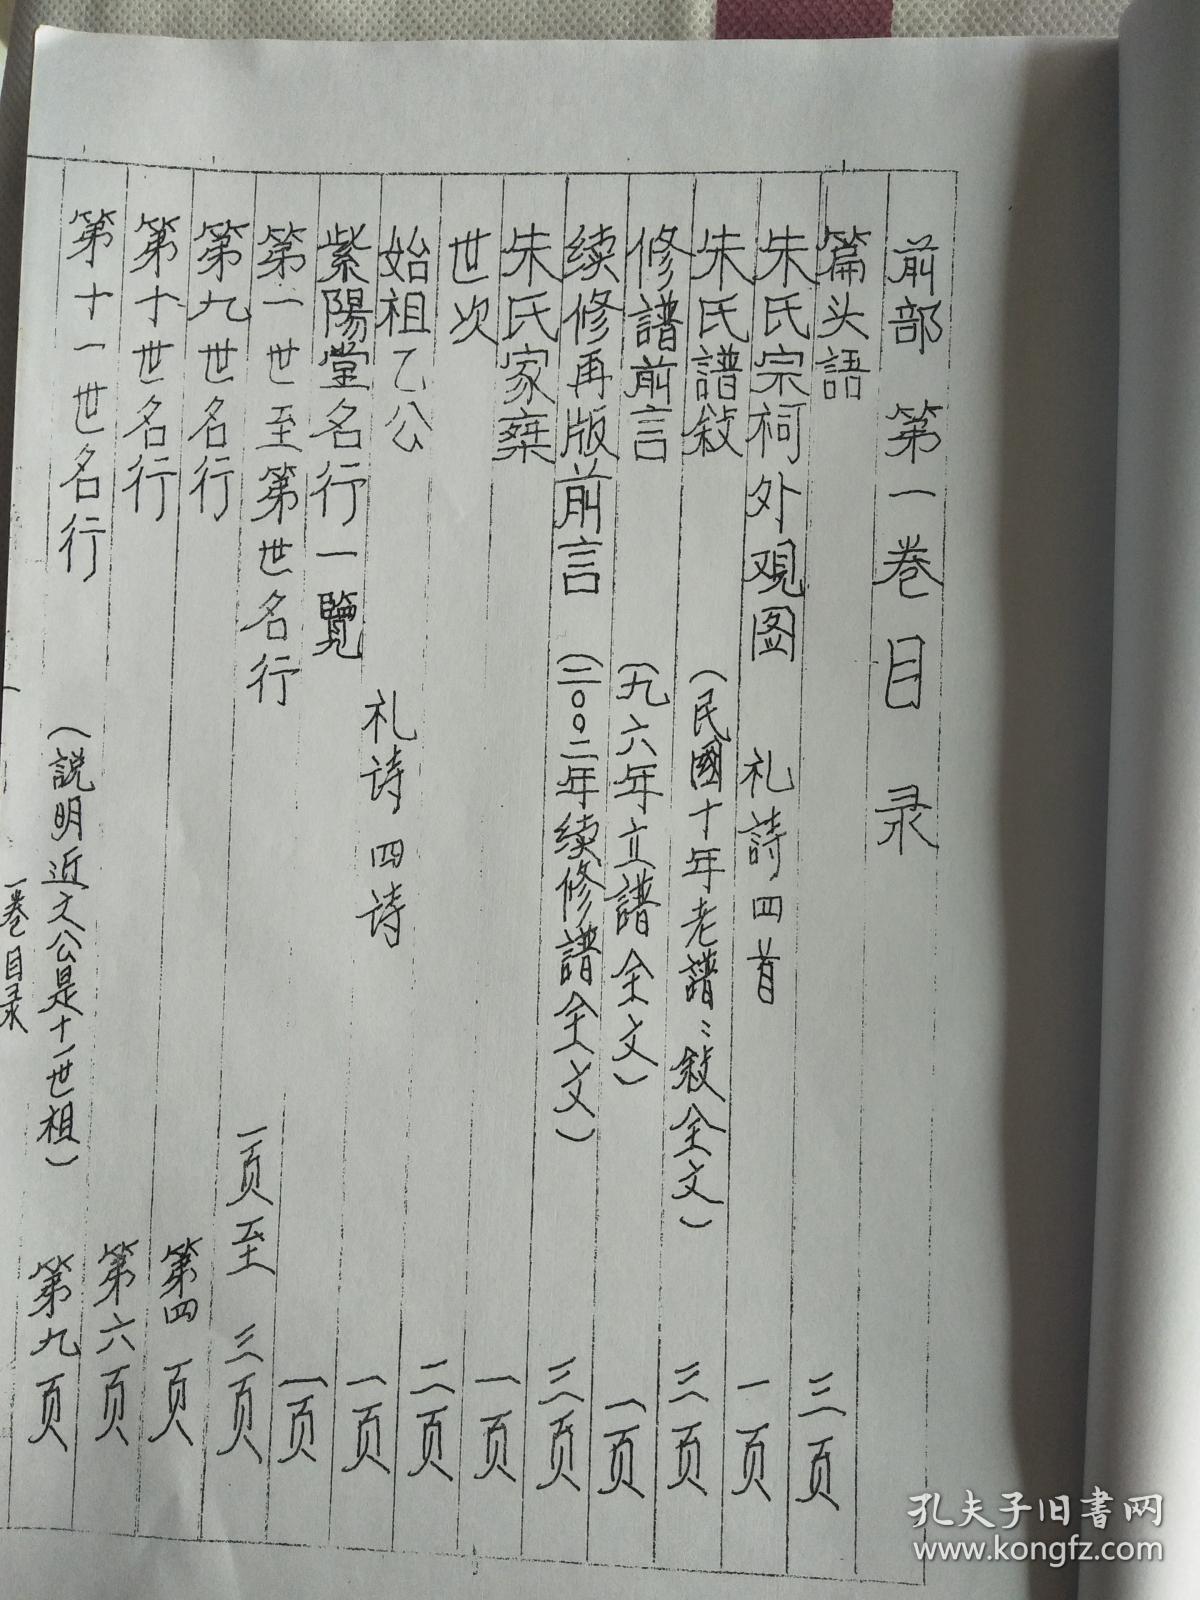 前部 第一卷 目 录
篇头語 三页
朱氏宗祠外观图 礼詩四首 一页
朱氏譜敍 (民國十年老譜:敍全文) 三页
修譜前言 (九六年立譜全文) 一页
续修再版前言 (二〇〇二年续修譜全文) 三页
朱氏家棄 一页
世次 二页
始祖乙公 礼诗四诗 一页
紫陽堂名行一覽 一页
第一世至第世名行 一页至三页
第九世名行 第四页
第十世名行 第六页
第十一世名行 (説明近文公是十一世祖) 第九页
一卷目录
一
孔夫子旧書网
www.kongfz.com